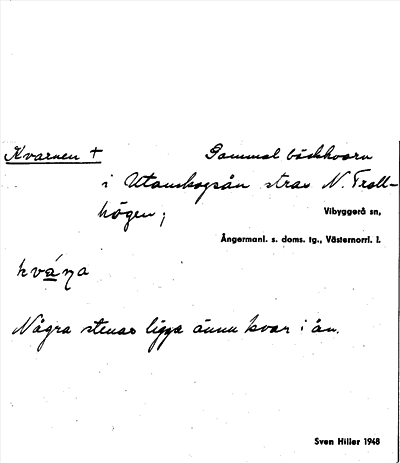 Kvarnen +
Gammal bäckkvarn
i Utanskogsån strax N. Troll-
högen;
Vibyggerå sn,
Ångermanl. s. doms. tg., Västernorrl. l.
kvána
Några stenar ligga ännu kvar i ån.
Sven Hiller 1948